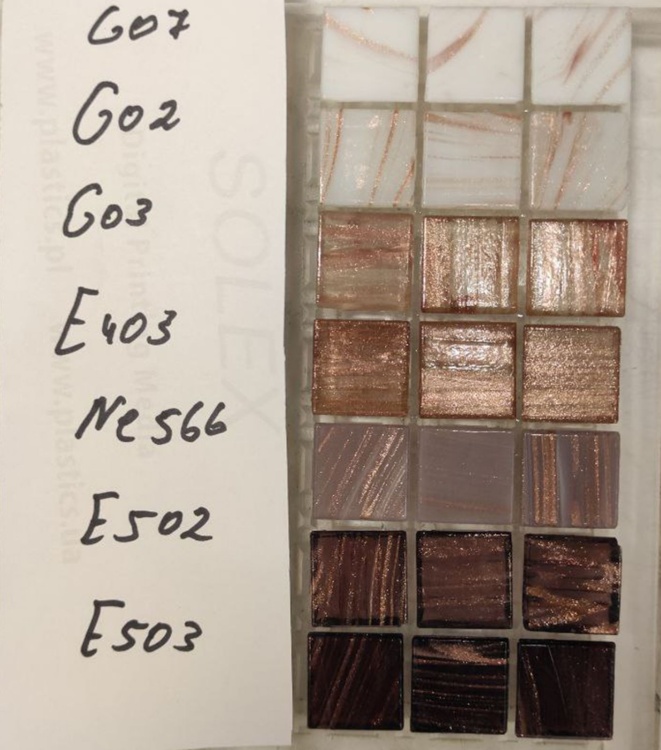 G07
G02
G03
E403
Ne566
E502
E503
SOLEX
Digital Printing Media
www.plastics.pl www.plastics.ua